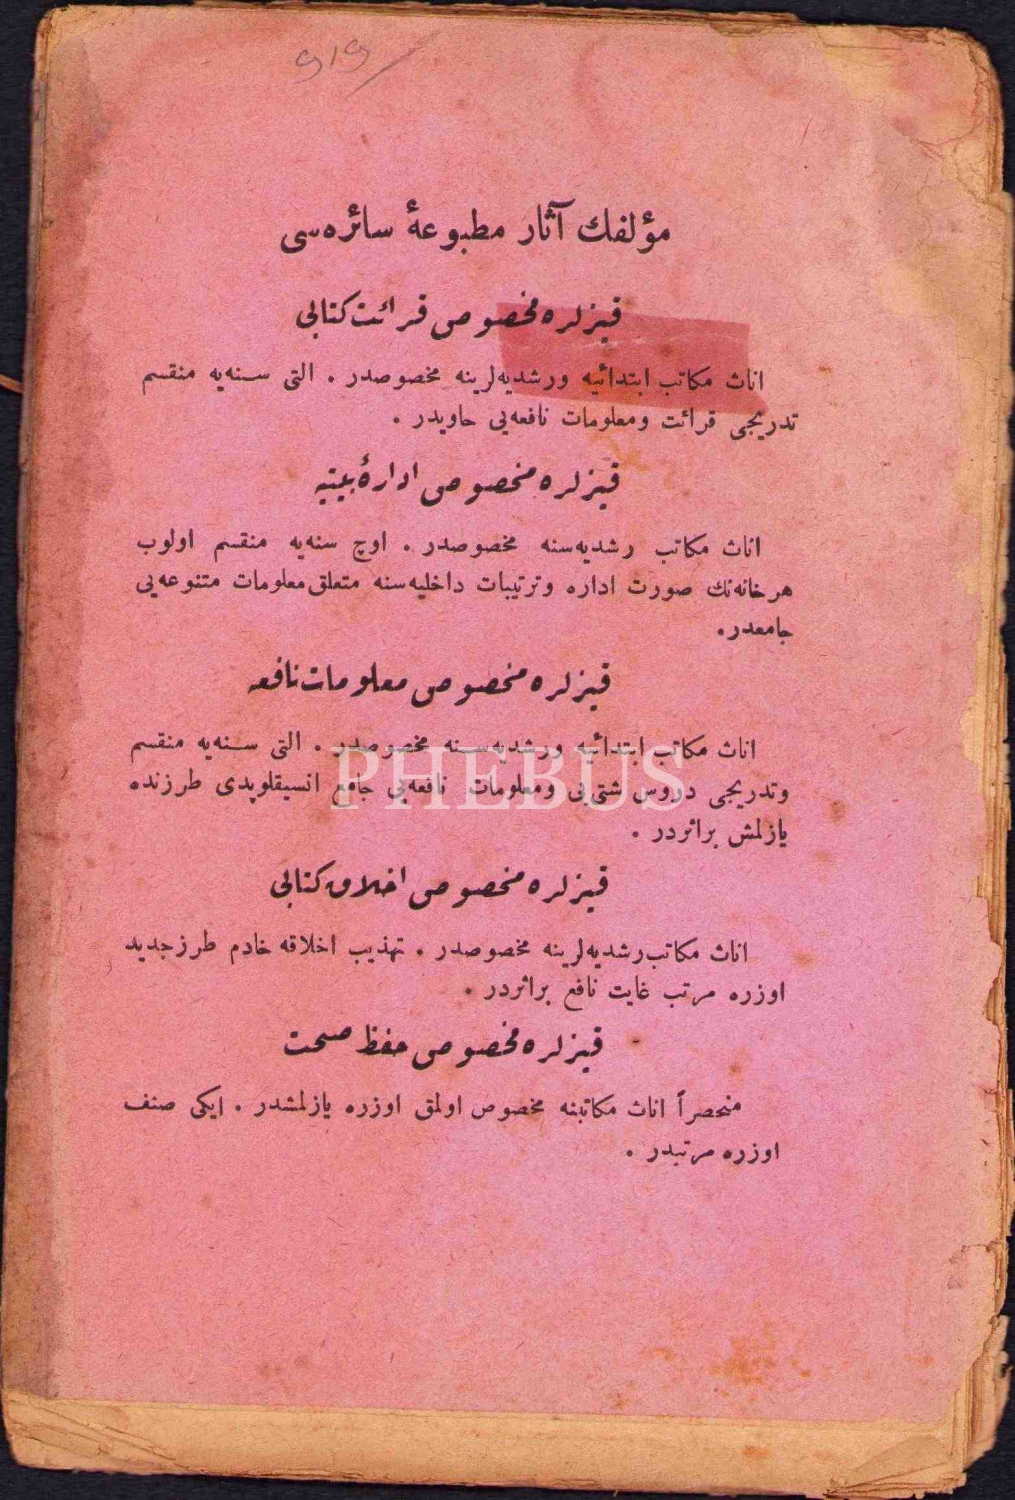 919
مؤلفك آثار مطبوعۀ سائره‌سی
قیزلره مخصوص قرائت کتابی
اناث مکاتب ابتدائیه ورشدیه‌لرینه مخصوصدر . التی سنه‌یه منقسم
تدریجی قرائت ومعلومات نافعه‌یی حاویدر .
قیزلره مخصوص ادارۀ بیتیه
اناث مکاتب رشدیه‌سنه مخصوصدر . اوچ سنه‌یه منقسم اولوب
هرخانه‌نك صورت اداره وترتیبات داخلیه‌سنه متعلق معلومات متنوعه‌یی
جامعدر.
قیزلره مخصوص معلومات نافعه
اناث مکاتب ابتدائیه ورشدیه‌سنه مخصوصدر . التی سنه‌یه منقسم
وتدریجی دروس شتی‌یی ومعلومات نافعه‌یی جامع انسیقلوپدی طرزنده
یازلمش براثردر .
قیزلره مخصوص اخلاق کتابی
اناث مکاتب رشدیه‌لرینه مخصوصدر . تهذیب اخلاقه خادم طرز جدید
اوزره مرتب غایت نافع براثردر .
قیزلره مخصوص حفظ صحت
منحصراً اناث مکاتبنه مخصوص اولمق اوزره یازلمشدر . ایکی صنف
اوزره مرتبدر .
PHEBUS